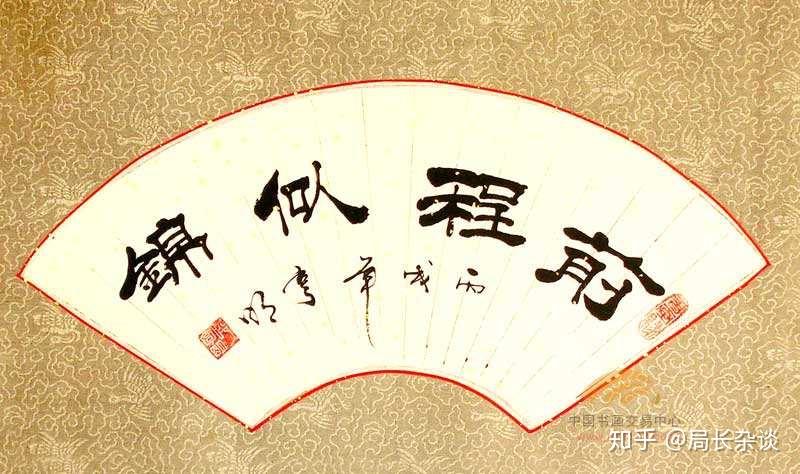 前程似錦
丙戌年
中国书画交易中心
知乎 @局长杂谈